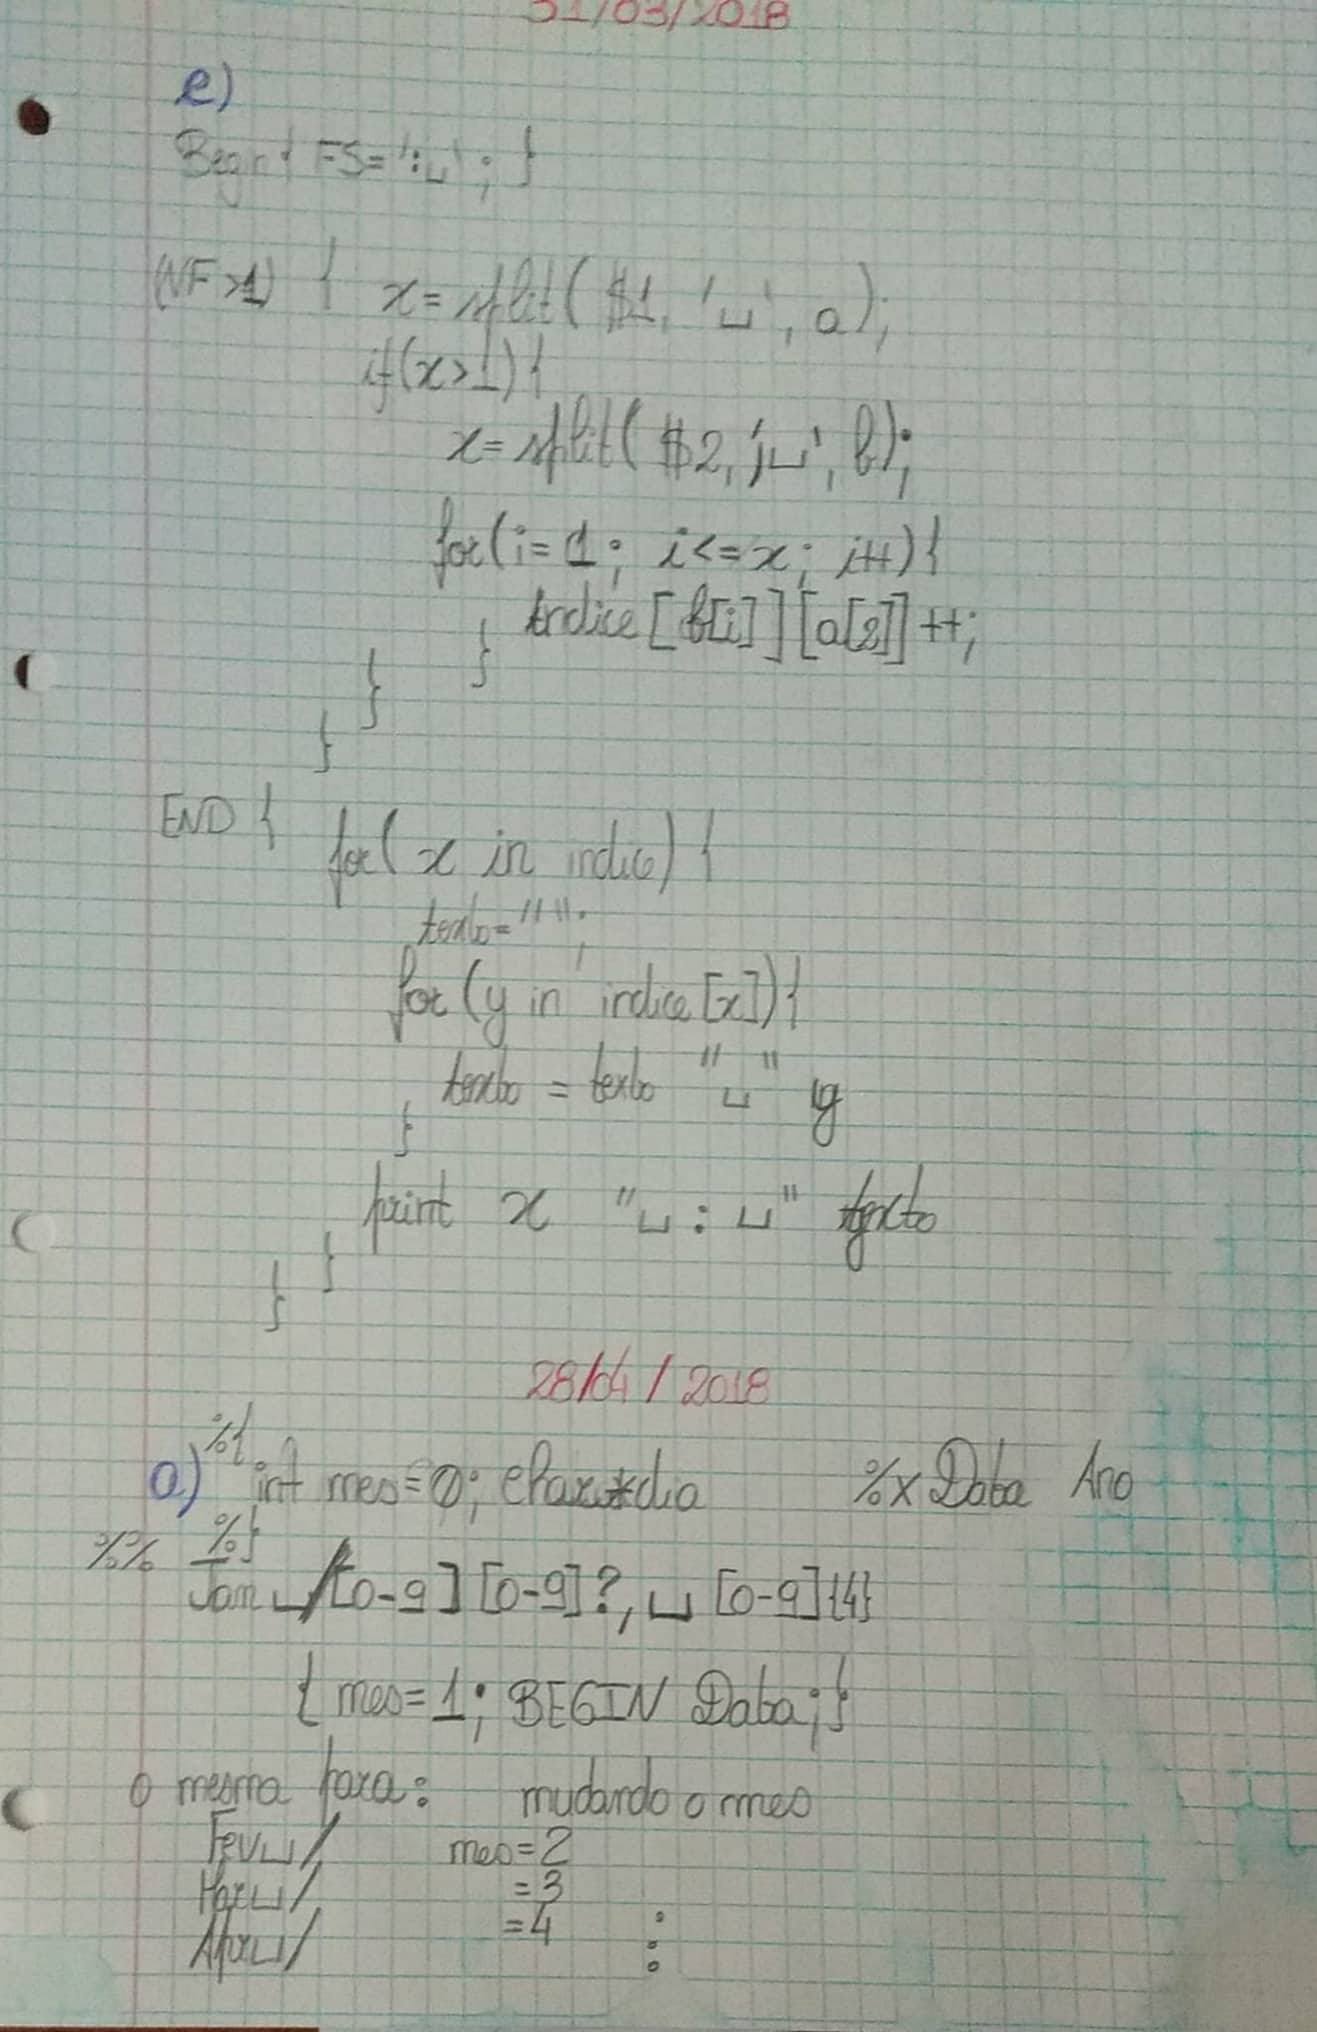 31/03/2018
e)
Begin{ FS=':␣'; }
(NF>1) { x=split($1, '␣', a);
if(x>1){
x=split($2, ';␣', b);
for(i=1; i<=x; i++){
indice[b[i]][a[2]]++;
}
}
}
END { for(x in indice){
texto="";
for(y in indice[x]){
texto = texto "␣" y
}
print x "␣:␣" texto
}
}
28/04/2018
%{
a) int mes=0; char*dia %x Data Ano
%% %}
Jan␣/[0-9][0-9]?,␣[0-9]{4}
{ mes=1; BEGIN Data;}
o mesmo para: mudando o mes
Fev␣/ mes=2
Mar␣/ =3
Apr␣/ =4 :